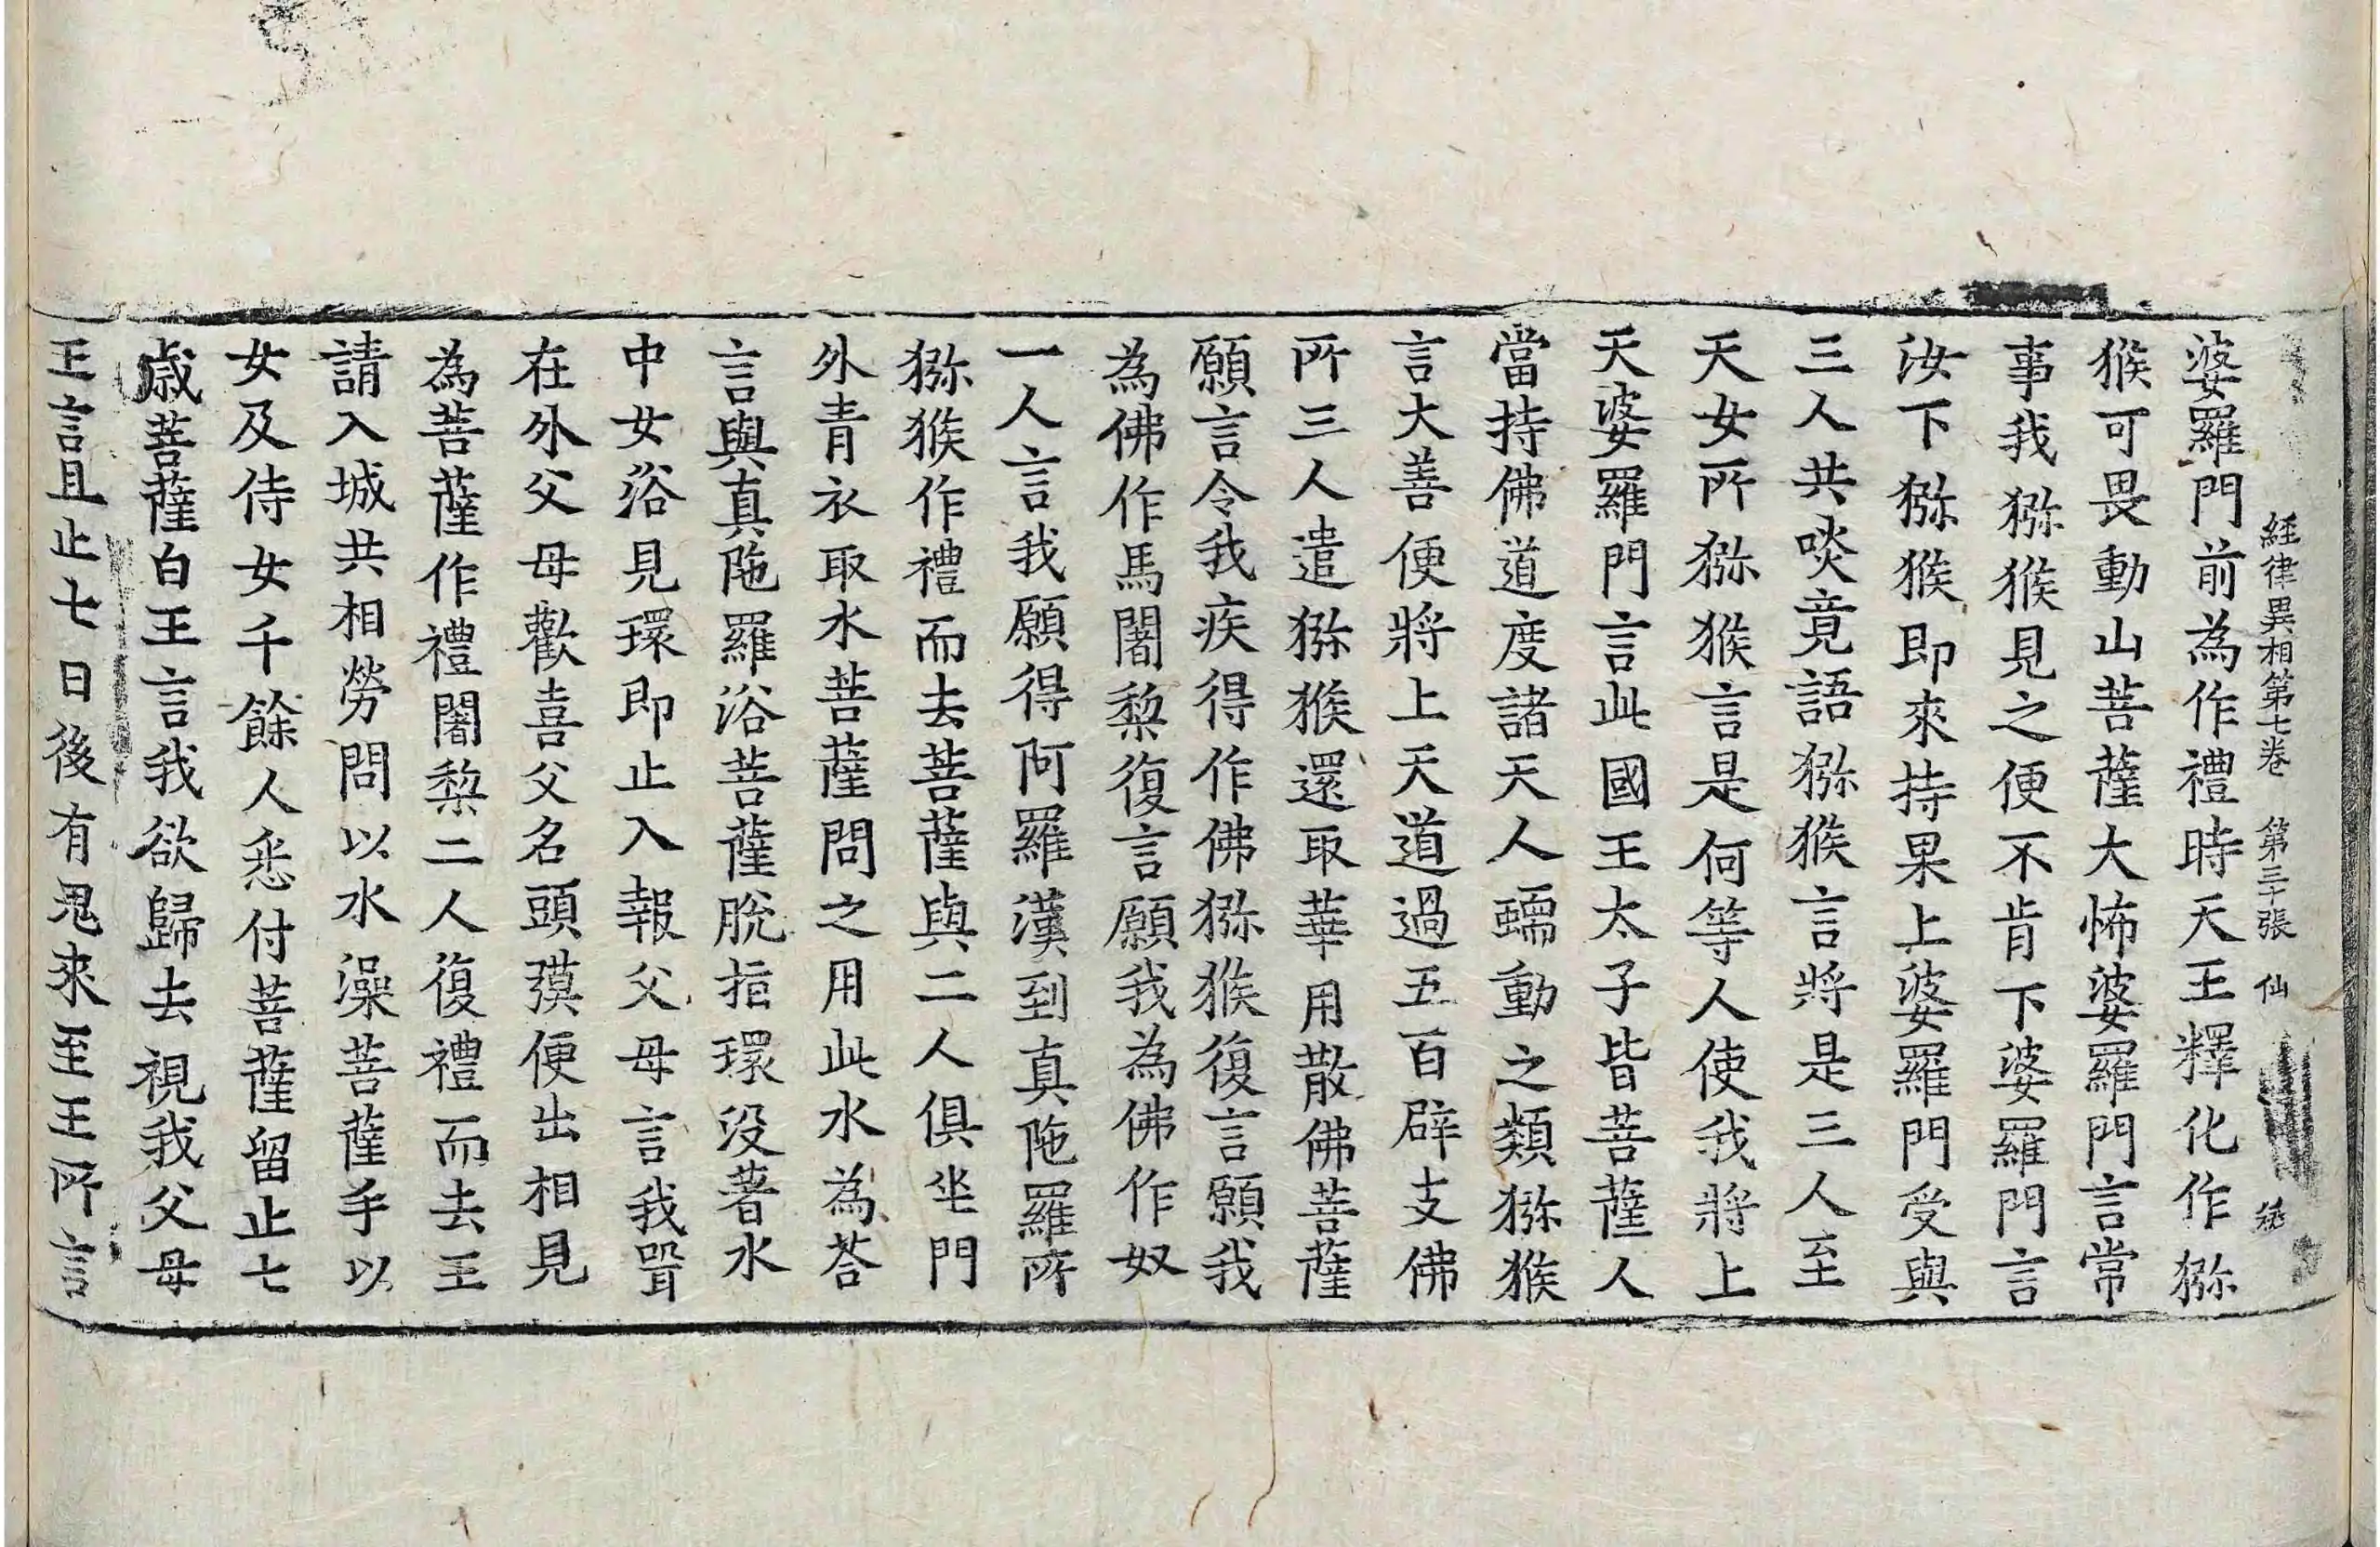 經律異相第七卷 第三十張 仙
婆羅門前為作禮時天王釋化作猕
猴可畏動山菩薩大怖婆羅門言常
事我猕猴見之便不肯下婆羅門言
汝下猕猴即來持果上婆羅門受與
三人共啖竟語猕猴言將是三人至
天女所猕猴言是何等人使我將上
天婆羅門言此國王太子皆菩薩人
當持佛道度諸天人蠕動之類猕猴
言大善便將上天道過五百辟支佛
所三人遣猕猴還取華用散佛菩薩
願言令我疾得作佛猕猴復言願我
為佛作馬闍梨復言願我為佛作奴
一人言我願得阿羅漢到真陁羅所
猕猴作禮而去菩薩與二人俱坐門
外青衣取水菩薩問之用此水為荅
言與真陁羅浴菩薩脫指環没著水
中女浴見環即止入報父母言我聟
在外父母歡喜父名頭㺀便出相見
為菩薩作禮闍梨二人復禮而去王
請入城共相勞問以水澡菩薩手以
女及侍女千餘人悉付菩薩留止七
歳菩薩白王言我欲歸去視我父母
王言且止七日後有鬼來至王所言